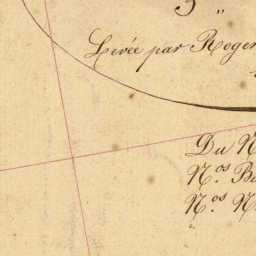 Levée par Roger
Du N
N.os B
N.os N